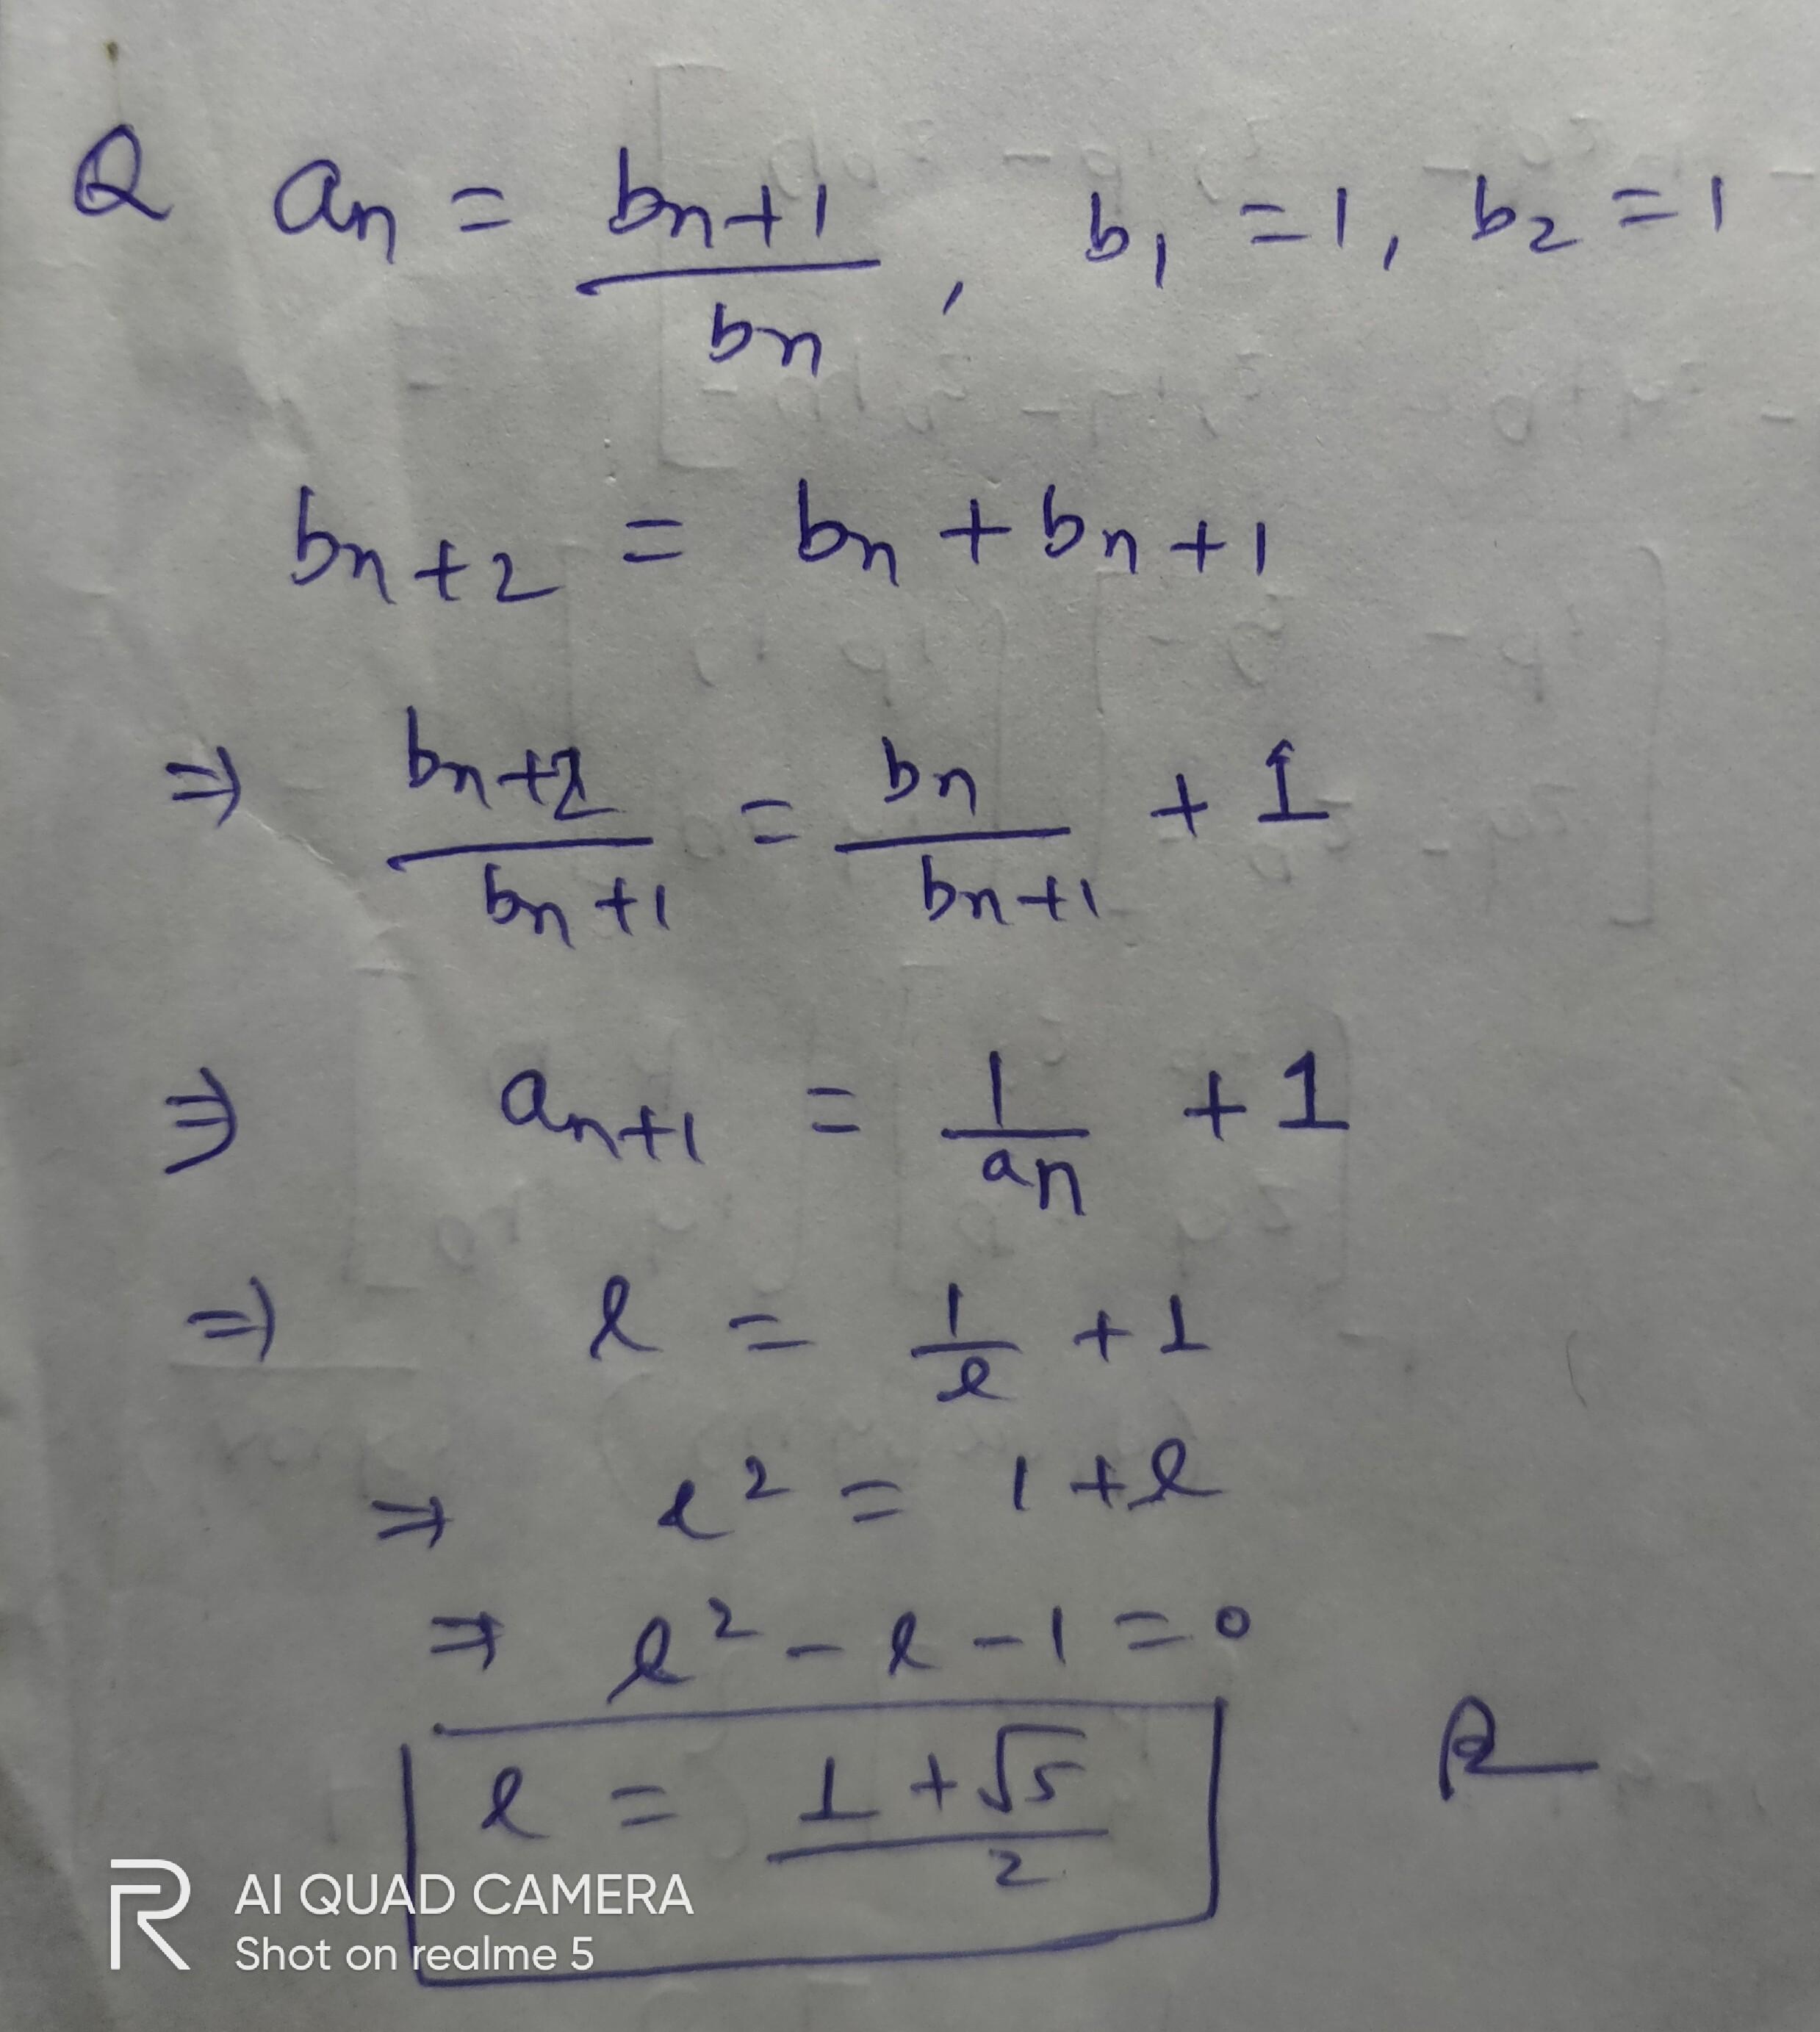 Q an = bn+1 / bn , b1 = 1, b2 = 1
bn+2 = bn + bn+1
⇒ bn+2 / bn+1 = bn / bn+1 + 1
⇒ an+1 = 1 / an + 1
⇒ l = 1 / l + 1
⇒ l² = 1 + l
⇒ l² - l - 1 = 0
l = 1 + √5 / 2
AI QUAD CAMERA
Shot on realme 5